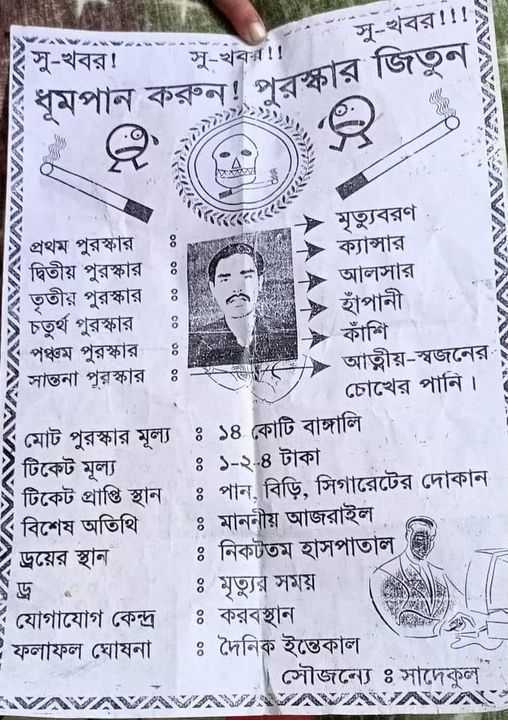 সু-খবর! সু-খবর!! সু-খবর!!!
ধূমপান করুন! পুরস্কার জিতুন
প্রথম পুরস্কার ঃ মৃত্যুবরণ
দ্বিতীয় পুরস্কার ঃ ক্যান্সার
তৃতীয় পুরস্কার ঃ আলসার
চতুর্থ পুরস্কার ঃ হাঁপানী
পঞ্চম পুরস্কার ঃ কাঁশি
সান্তনা পুরস্কার ঃ আত্নীয়-স্বজনের
চোখের পানি।
মোট পুরস্কার মূল্য ঃ ১৪ কোটি বাঙ্গালি
টিকেট মূল্য ঃ ১-২-৪ টাকা
টিকেট প্রাপ্তি স্থান ঃ পান, বিড়ি, সিগারেটের দোকান
বিশেষ অতিথি ঃ মাননীয় আজরাইল
ড্রয়ের স্থান ঃ নিকটতম হাসপাতাল
ড্র ঃ মৃত্যুর সময়
যোগাযোগ কেন্দ্র ঃ কবরস্থান
ফলাফল ঘোষনা ঃ দৈনিক ইন্তেকাল
সৌজন্যে ঃ সাদেকুল